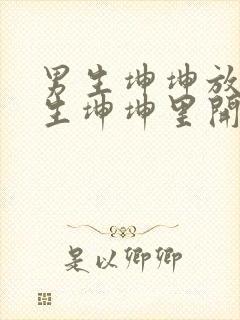 男生坤坤放
生坤坤里開
是以卿卿